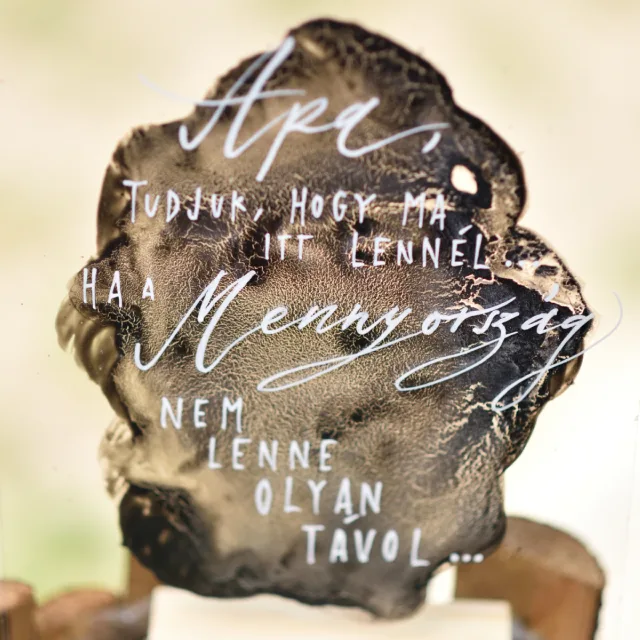 Apa,
TUDJUK, HOGY MA
ITT LENNÉL...
HA A Mennyország
NEM
LENNE
OLYAN
TÁVOL...